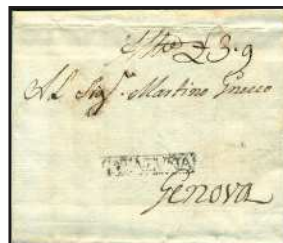 £3.9
Al Sig.r Martino Gnecco
Genova